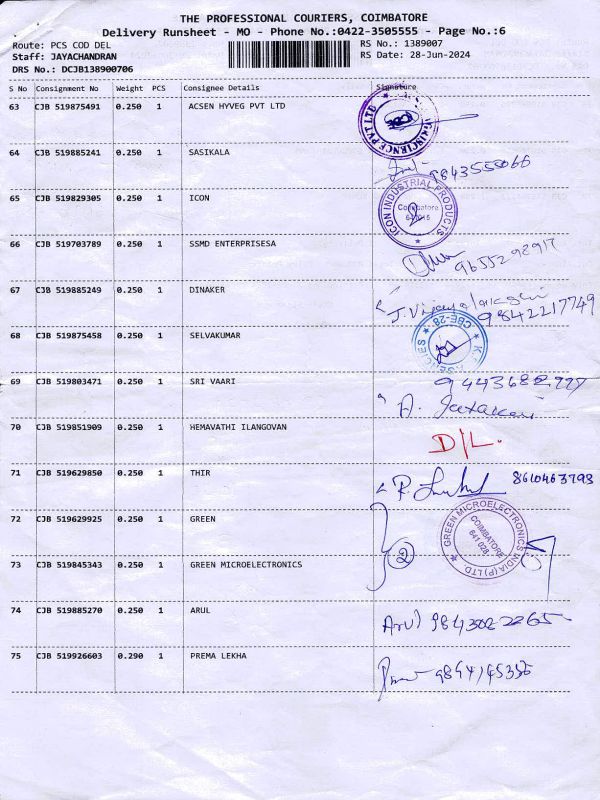 THE PROFESSIONAL COURIERS, COIMBATORE
Delivery Runsheet - MO - Phone No.:0422-3505555 - Page No.:6
Route: PCS COD DEL RS No.: 1389007
Staff: JAYACHANDRAN RS Date: 28-Jun-2024
DRS No.: DCJB138900706
S No Consignment No Weight PCS Consignee Details Signature
63 CJB 519875491 0.250 1 ACSEN HYVEG PVT LTD
64 CJB 519885241 0.250 1 SASIKALA 9843555066
65 CJB 519829305 0.250 1 ICON ICON INDUSTRIAL PRODUCTS Coimbatore
66 CJB 519703789 0.250 1 SSMD ENTERPRISESA 9655292917
67 CJB 519885249 0.250 1 DINAKER J. Vijayalakshmi 9842217749
68 CJB 519875458 0.250 1 SELVAKUMAR CBE-28
69 CJB 519803471 0.250 1 SRI VAARI A.
70 CJB 519851909 0.250 1 HEMAVATHI ILANGOVAN D/L.
71 CJB 519629850 0.250 1 THIR R. 8610463793
72 CJB 519629925 0.250 1 GREEN GREEN MICROELECTRONICS INDIA (P) LTD. COIMBATORE 641 028
73 CJB 519845343 0.250 1 GREEN MICROELECTRONICS 2
74 CJB 519885270 0.250 1 ARUL Arul 9843022265
75 CJB 519926603 0.290 1 PREMA LEKHA